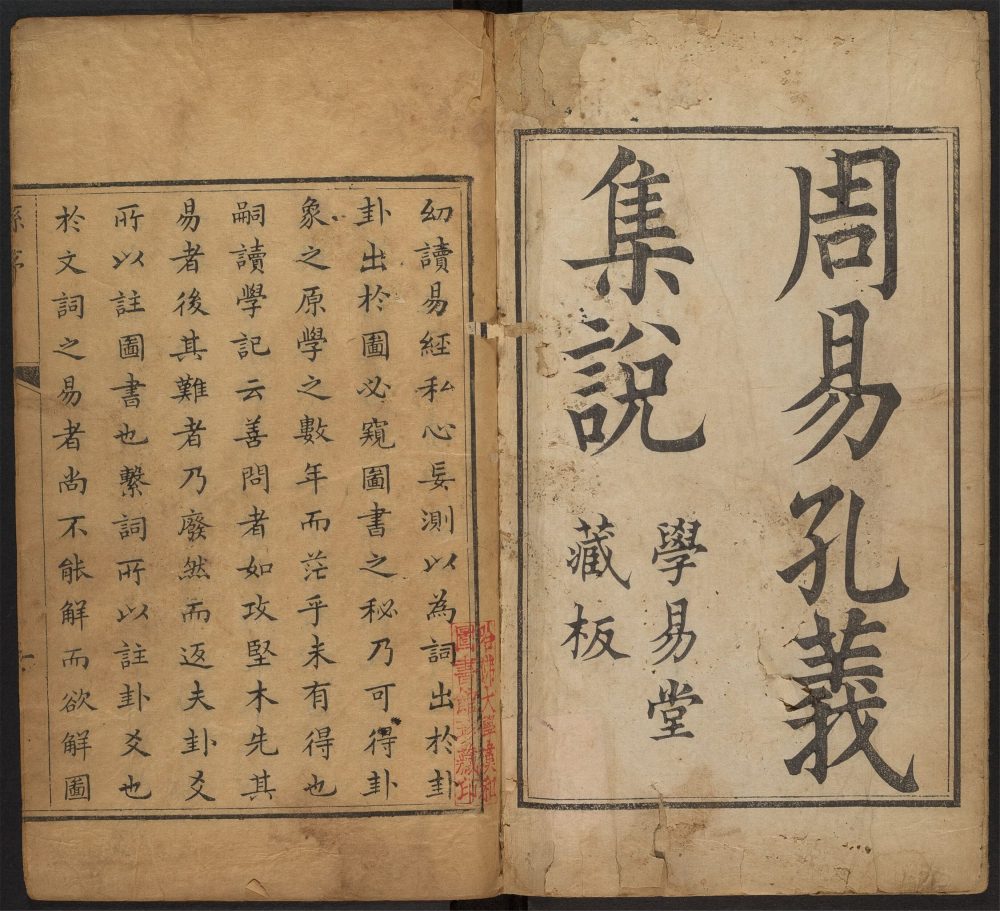 周易孔義
集說
學易堂
藏板
幼讀易經私心妄測以為詞出於卦
卦出於圖必窺圖書之秘乃可得卦
象之原學之數年而茫乎未有得也
嗣讀學記云善問者如攻堅木先其
易者後其難者乃廢然而返夫卦爻
所以註圖書也繫詞所以註卦爻也
於文詞之易者尚不能解而欲解圖
哈佛大學漢和
圖書館珍藏印